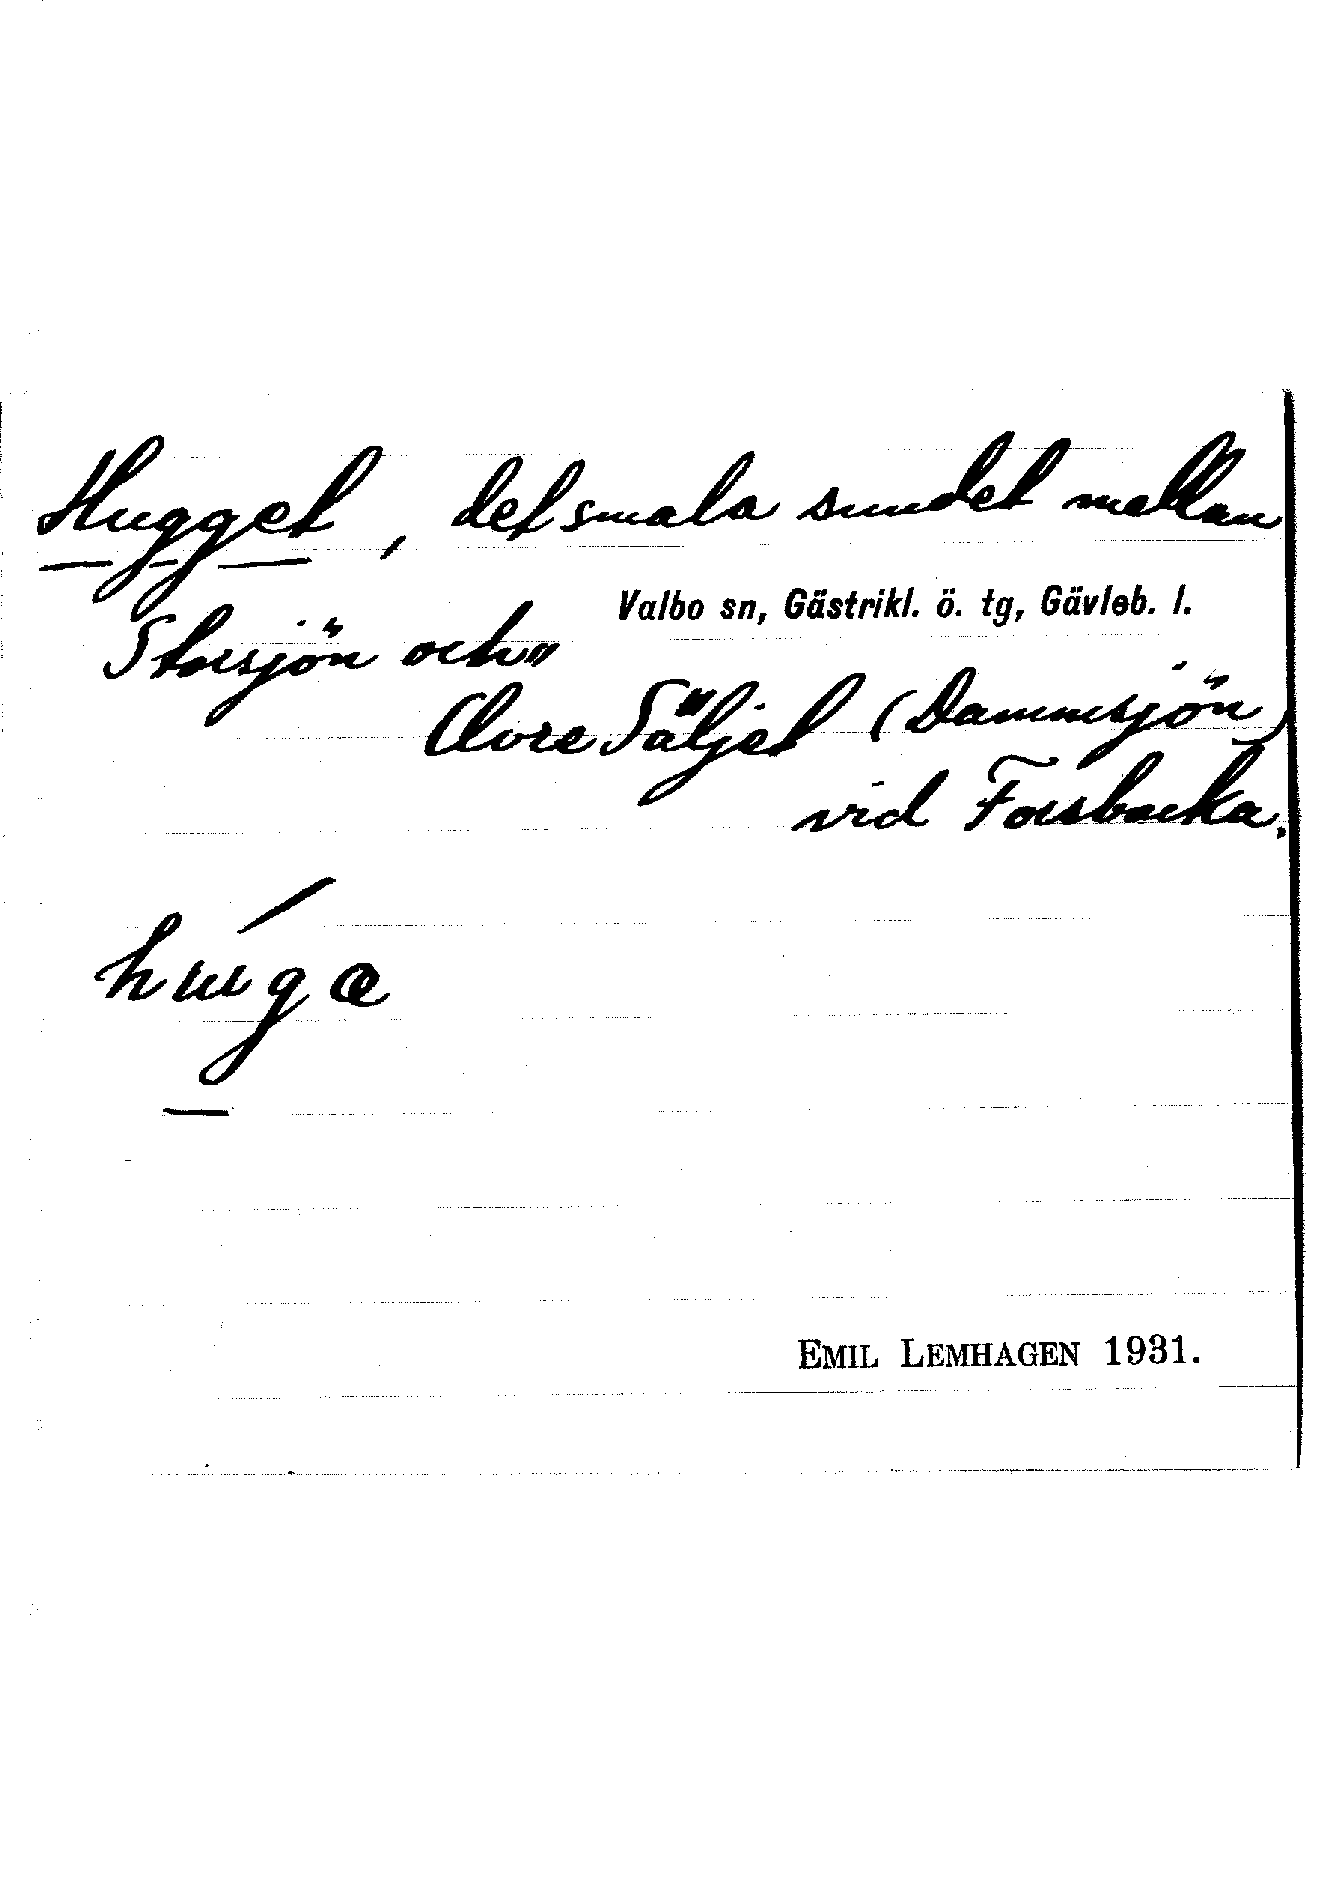 Hugget, det smala sundet mellan
Valbo sn, Gästrikl. ö. tg, Gävleb. l.
Storsjön och
Övre Säljet (Dammsjön)
vid Forsbacka.
EMIL LEMHAGEN 1931.